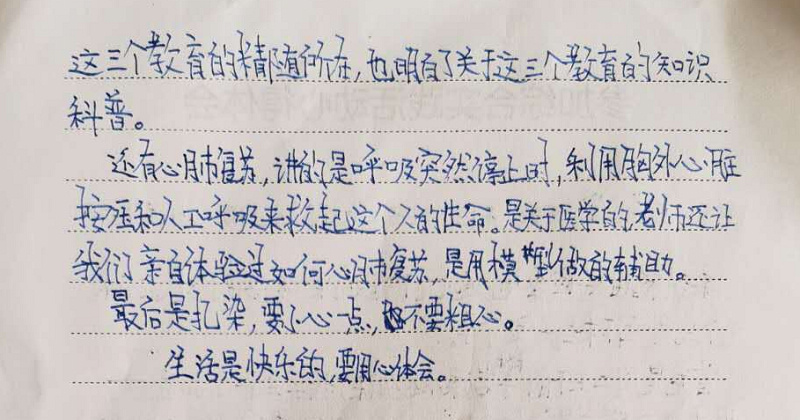 这三个教育的精随所在,也明白了关于这三个教育的知识
科普。
还有心肺复苏,讲的是呼吸突然停止时,利用胸外心脏
按压和人工呼吸来救起这个人的生命。是关于医学的,老师还让
我们亲自体验过如何心肺复苏,是用模型做的辅助。
最后是扎染,要小心一点,不要粗心。
生活是快乐的,要用心体会。